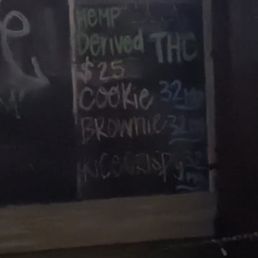 HEMP
Derived THC
$25
COOKIE 32mg
BROWNIE 32mg
32